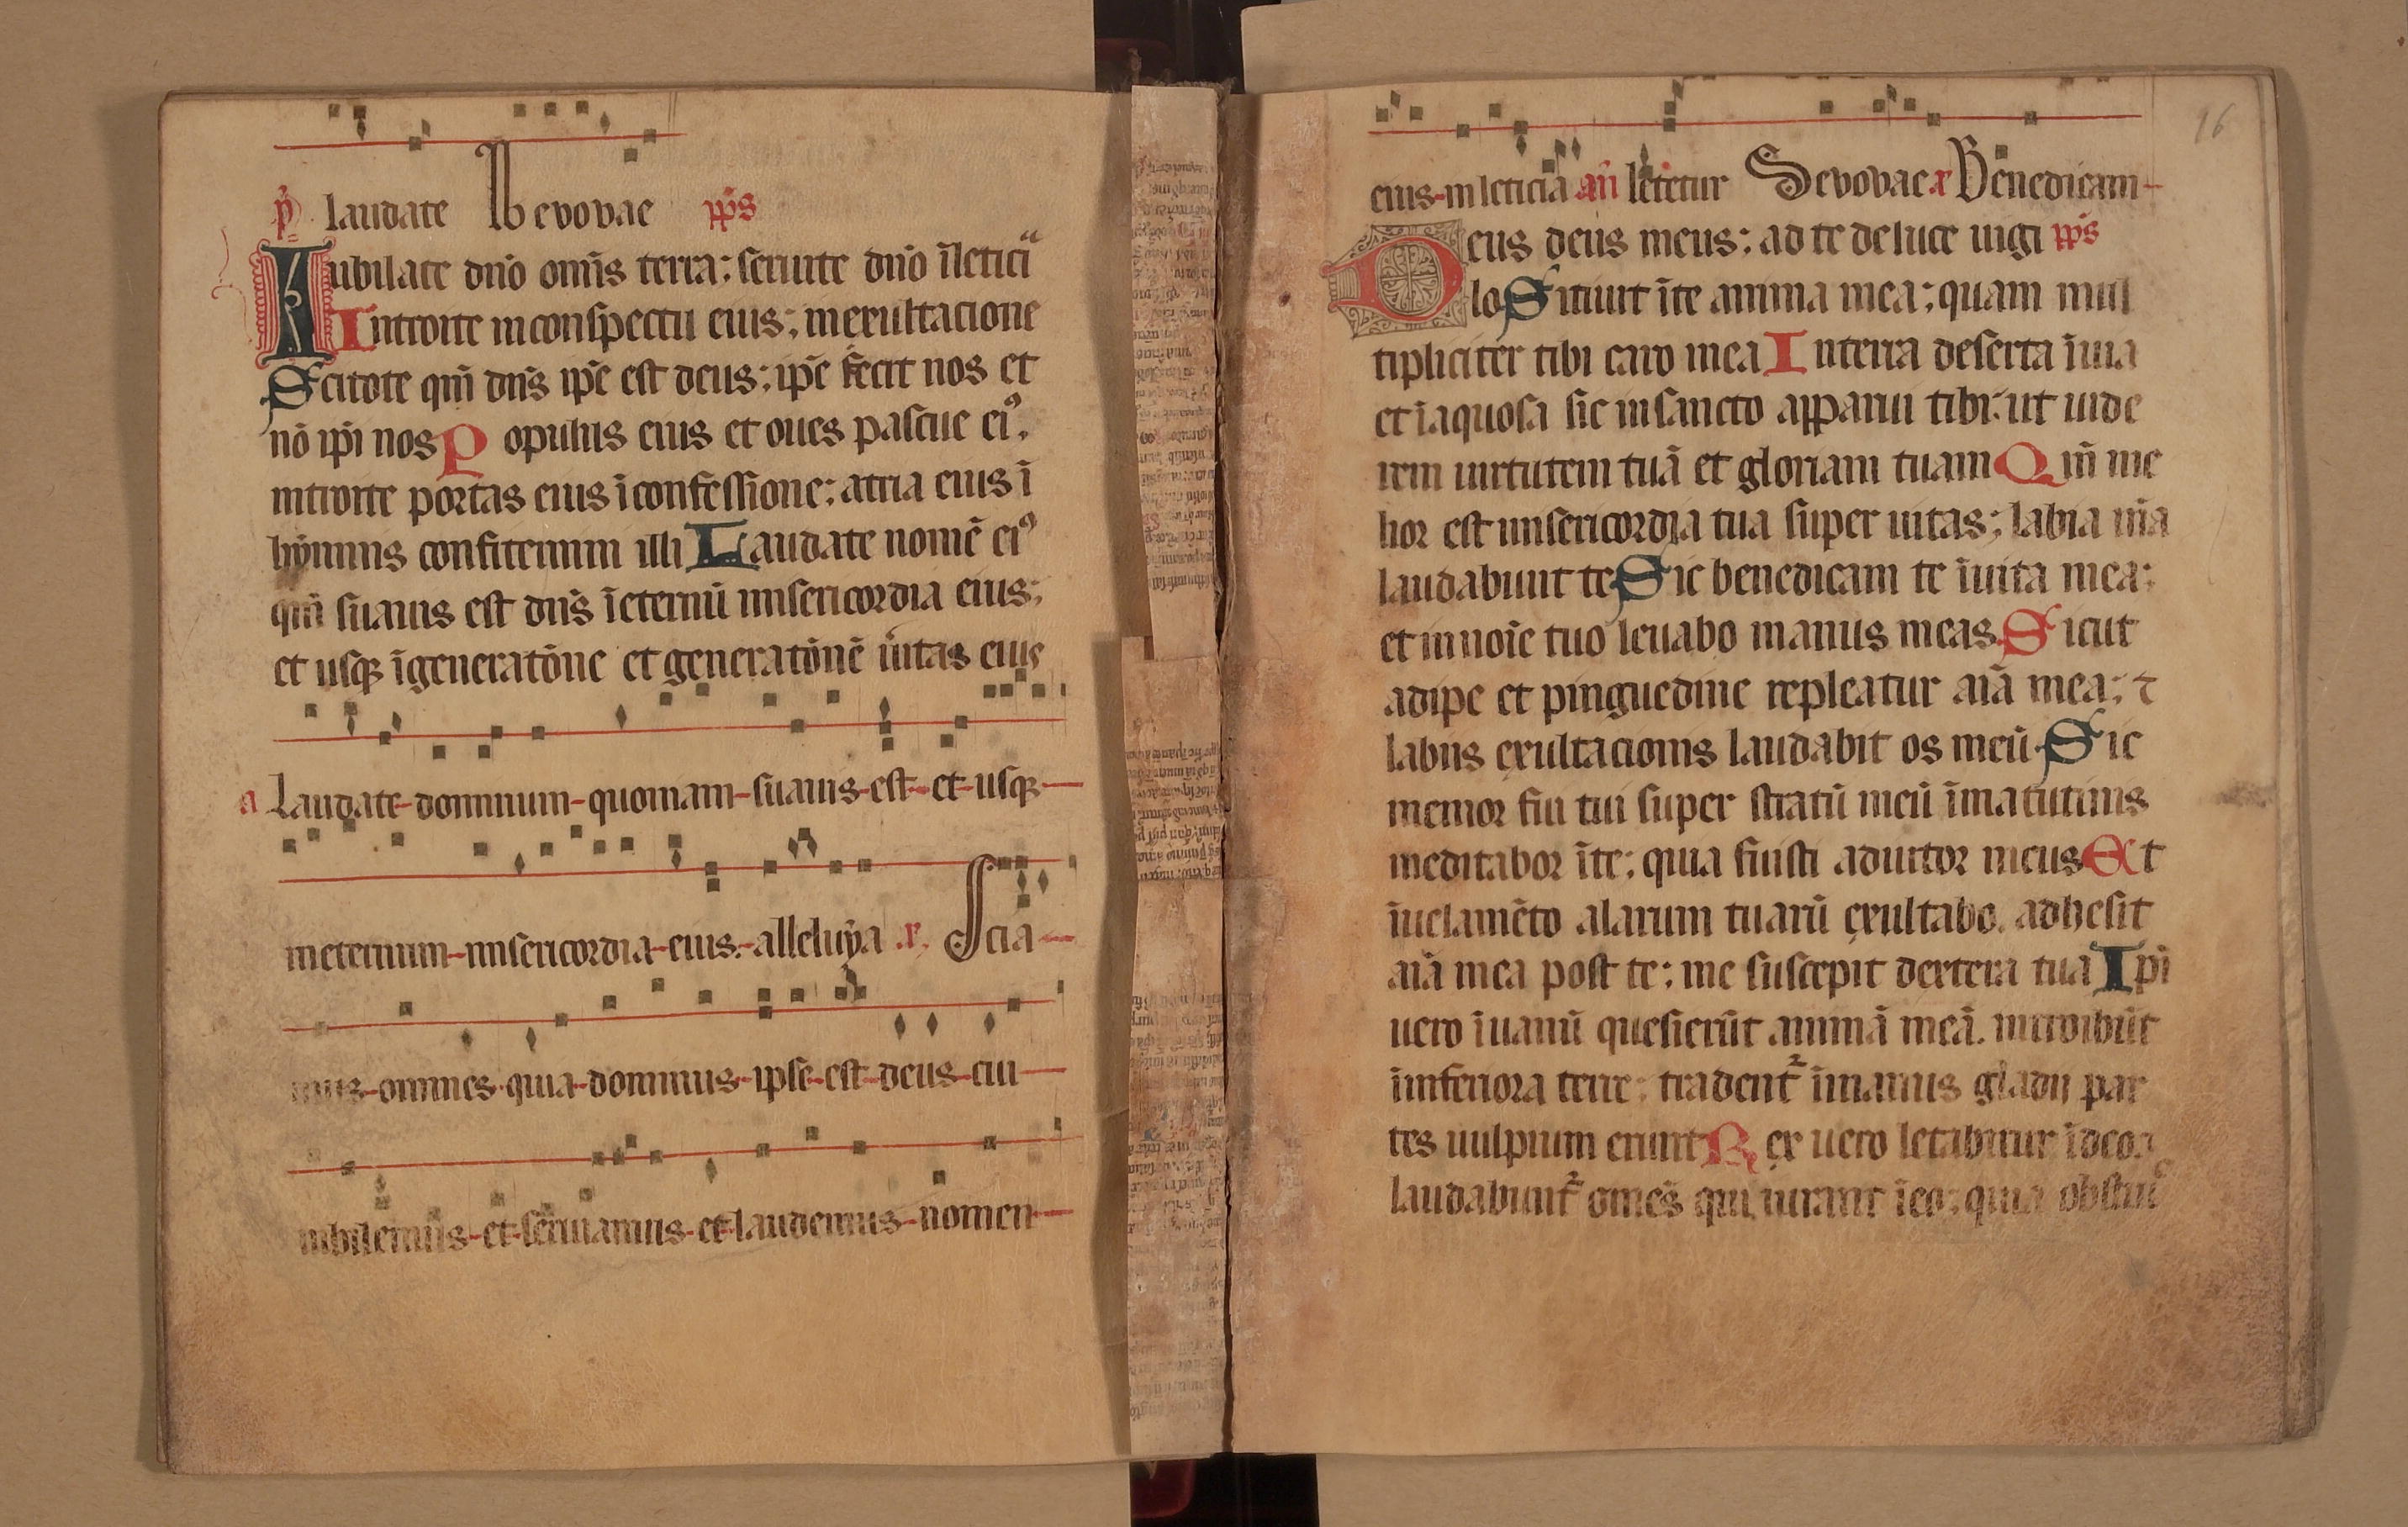 p̄ laudate Sevovae pp̄s
Iubilate dn̄o om̄is terra: seruite dn̄o ĩleticia
Introite inconspectu eius: inexultacione
Scitote qm̄ dn̄s ip̄e est deus: ip̄e fecit nos et
nō ip̄i nos Populus eius et oues pascue eiꝰ.
introite portas eius ĩconfessione: atria eius ĩ
hẏmnis confitemini illi Laudate nomē eiꝰ
qm̄ suauis est dn̄s ĩeternū misericordia eius:
et usqꝫ ĩgeneratōne et generatōnē ũitas eius
a Laudate-dominum-quoniam-suauis-est-et-usqꝫ-
ineternum-misericordia-eius.-alleluẏa .x. Scia-
mus-omnes-quia-dominus-ipse-est-deus-cui-
iubilemus-et-seruiamus-et-laudemus-nomen-
eius-inleticia an̄ letetur Sevovae x Benedicam-
Deus deus meus: ad te deluce uigi pp̄s
lo Sitiuit ĩte anima mea: quam mul
tipliciter tibi caro mea Interra deserta ĩuia
et ĩaquosa sic insancto apparui tibi: ut uide
rem uirtutem tuā et gloriam tuam Qm̄ me
lior est misericordia tua super uitas: labia m̄a
laudabunt te Sic benedicam te ĩuita mea:
et innoīe tuo leuabo manus meas Sicut
adipe et pinguedine repleatur aīa mea: ⁊
labiis exultacionis laudabit os meū Sic
memor fui tui super stratū meū ĩmatutinis
meditabor ĩte: quia fuisti adiutor meus Et
ĩuelamēto alarum tuarū exultabo. adhesit
aīa mea post te: me suscepit dextera tua Ip̄i
uero ĩuanū quesierūt animā meā. introibūt
ĩinferiora terre: tradent᷑ ĩmanus gladii par
tes uulpium erunt Rex uero letabitur ĩdeo:
laudabunt᷑ om̄es qui iurant ĩeo: quia obstru
16